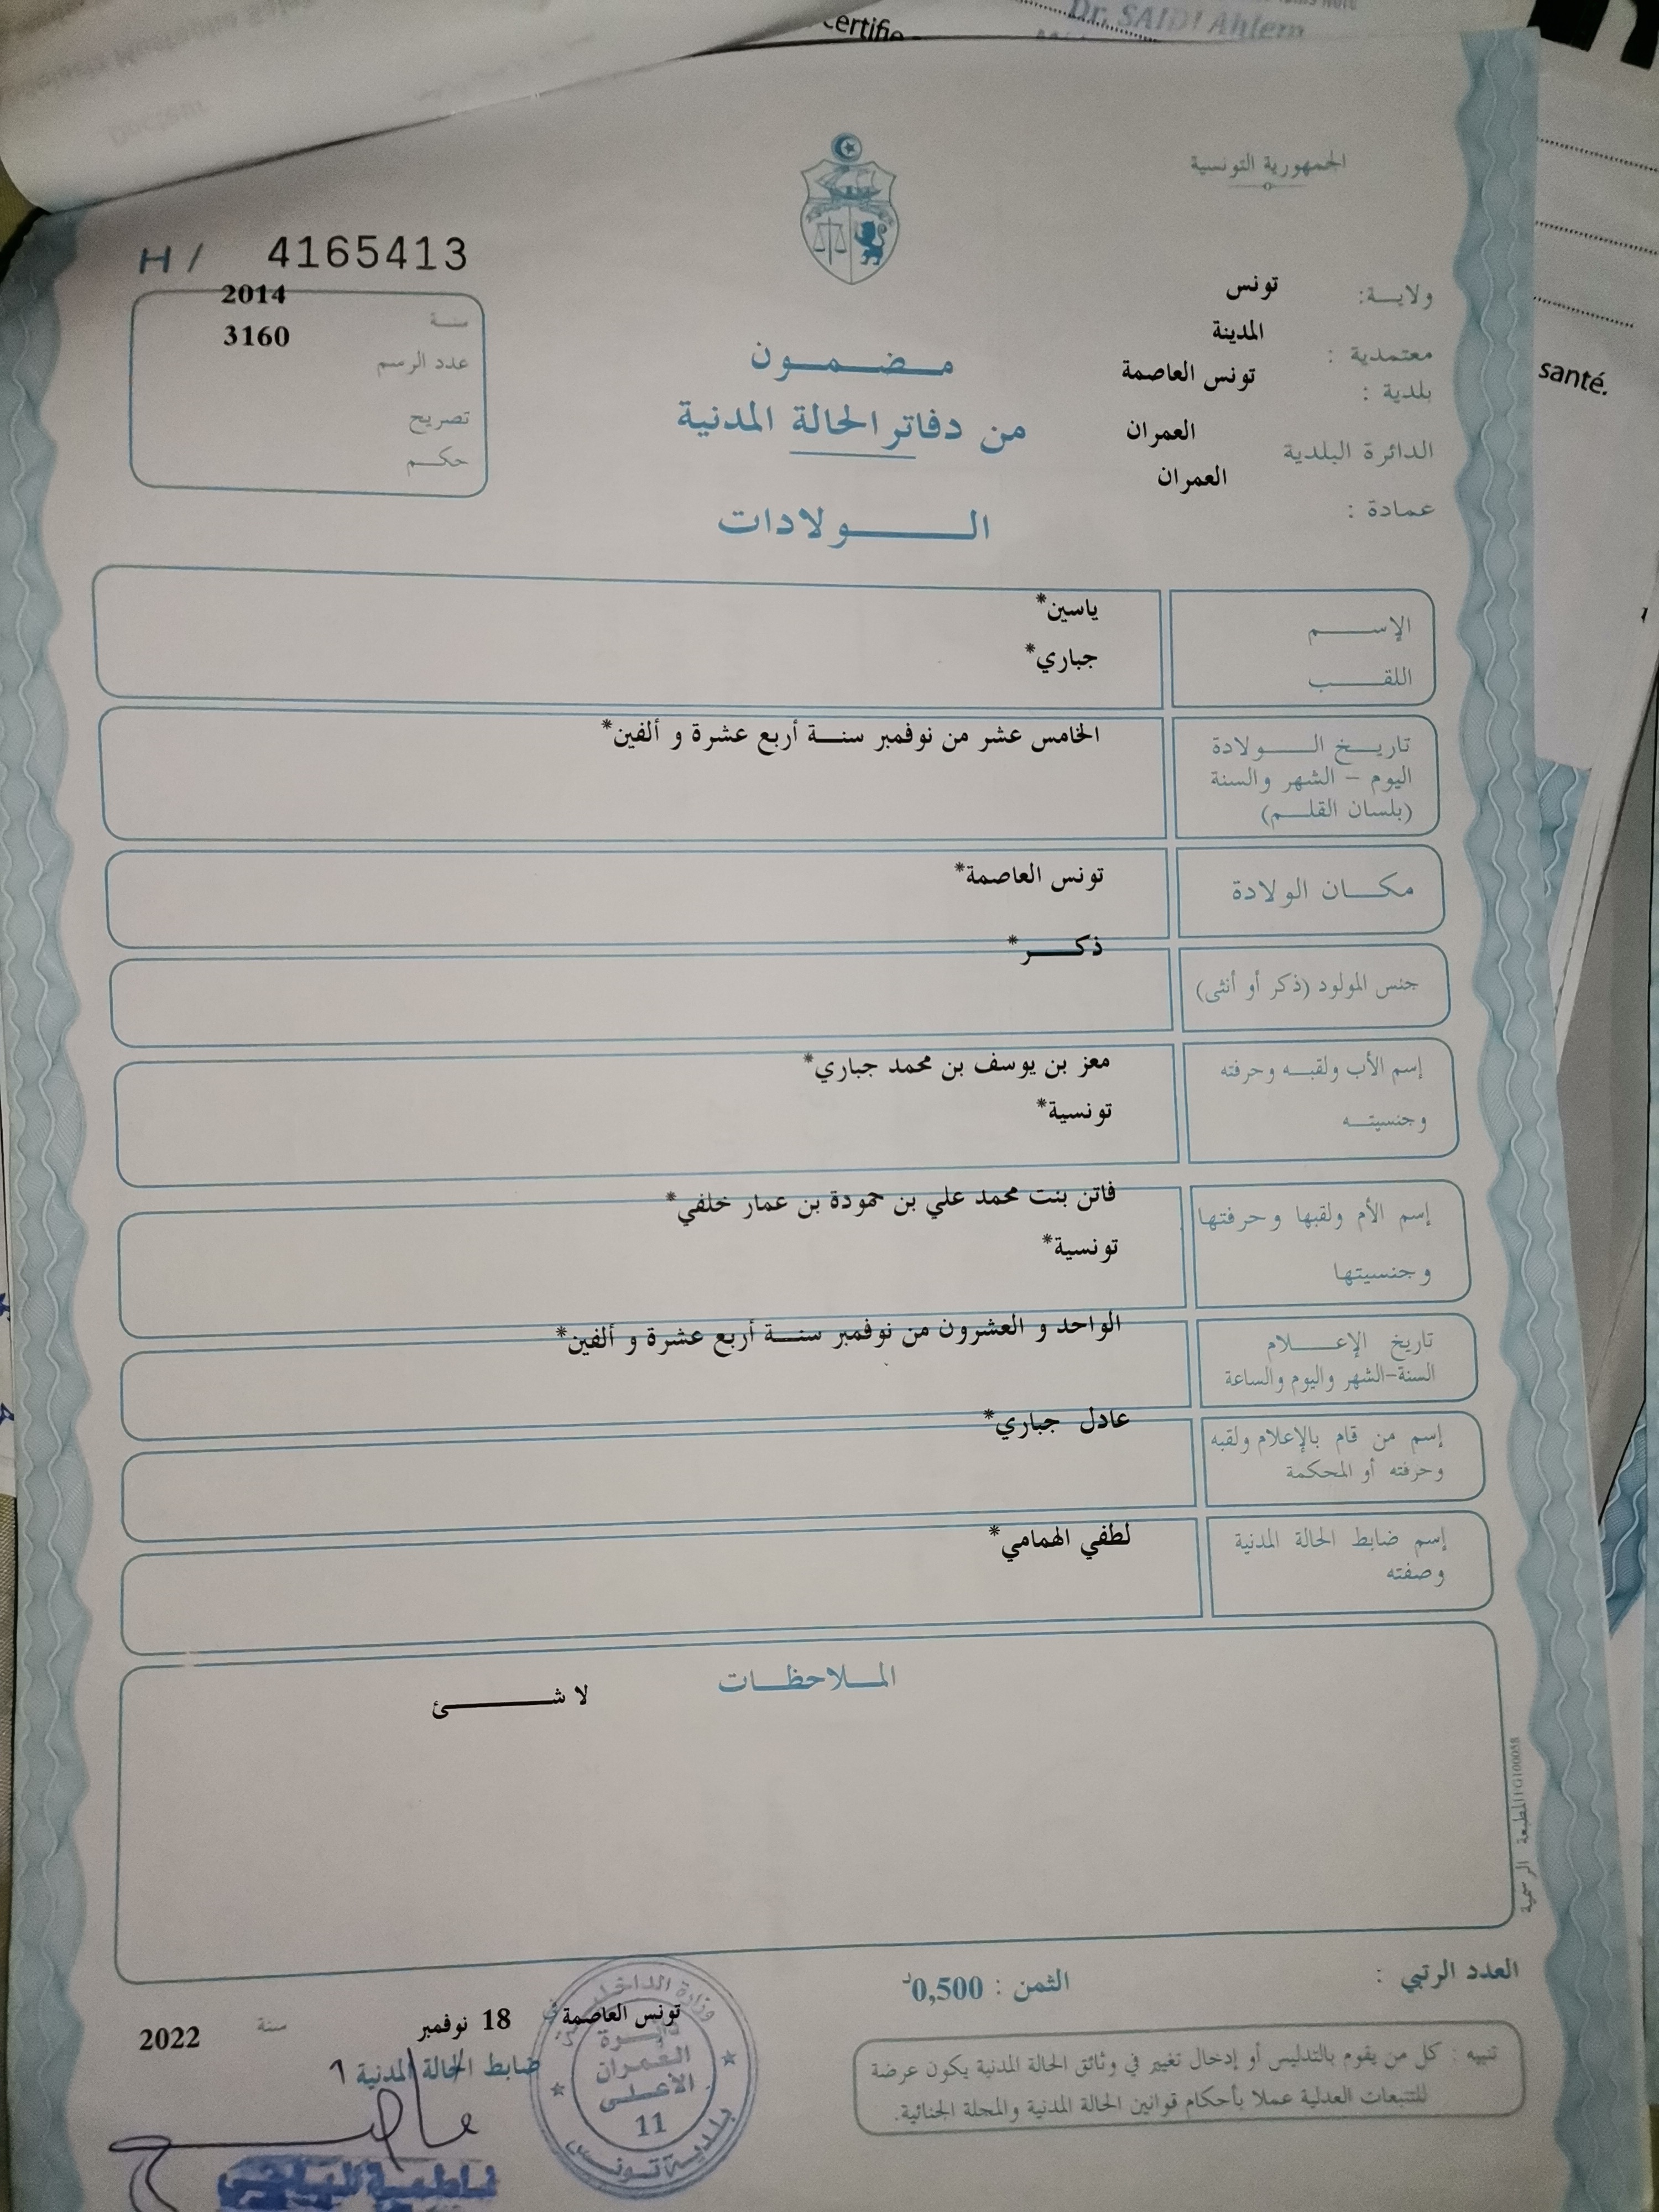 certifie
Dr. SAIDI Ahlem
santé.
الجمهورية التونسية
H / 4165413
سنة 2014
عدد الرسم 3160
تصريح
حكم
ولاية: تونس
معتمدية : المدينة
بلدية : تونس العاصمة
الدائرة البلدية العمران
عمادة : العمران
مضمون
من دفاتر الحالة المدنية
الولادات
الإسم ياسين*
اللقب جباري*
تاريخ الولادة الخامس عشر من نوفمبر سنة أربع عشرة و ألفين*
اليوم - الشهر والسنة
(بلسان القلم)
مكان الولادة تونس العاصمة*
جنس المولود (ذكر أو أنثى) ذكر*
إسم الأب ولقبه وحرفته معز بن يوسف بن محمد جباري*
وجنسيته تونسية*
إسم الأم ولقبها وحرفتها فاتن بنت محمد علي بن حمودة بن عمار خلفي*
وجنسيتها تونسية*
تاريخ الإعلام الواحد و العشرون من نوفمبر سنة أربع عشرة و ألفين*
السنة-الشهر واليوم والساعة
إسم من قام بالإعلام ولقبه عادل جباري*
وحرفته أو المحكمة
إسم ضابط الحالة المدنية لطفي الهمامي*
وصفته
الملاحظات
لا شئ
المطبعة الرسمية
العدد الرتبي :
الثمن : 0,500د
تونس العاصمة في 18 نوفمبر سنة 2022
ضابط الحالة المدنية
وزارة الداخلية
دائرة
العمران
الأعلى
11
بلدية تونس
تنبيه : كل من يقوم بالتدليس أو إدخال تغيير في وثائق الحالة المدنية يكون عرضة
للتتبعات العدلية عملا بأحكام قوانين الحالة المدنية والمجلة الجنائية.